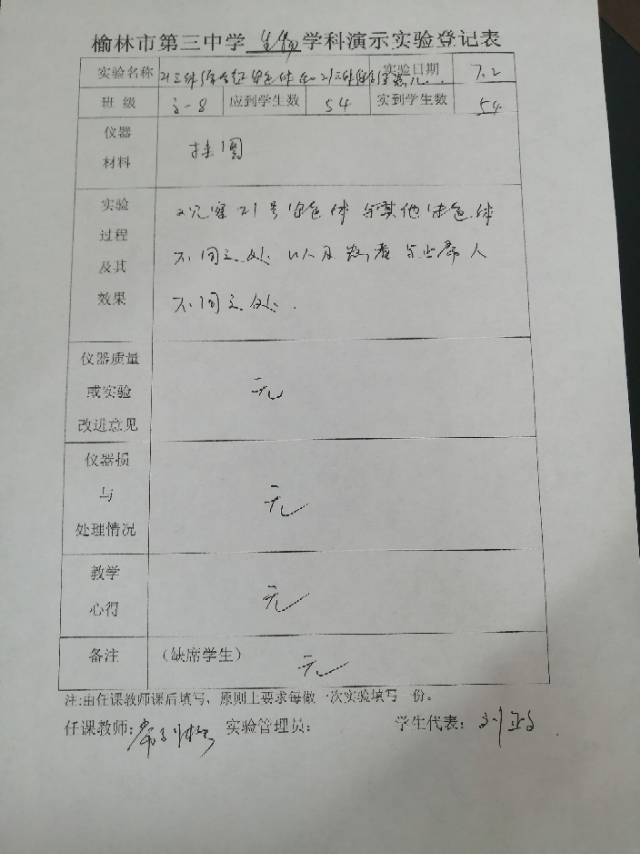 榆林市第三中学 生物 学科演示实验登记表
实验名称 21三体综合征染色体和21三体 实验日期 7.2
班 级 高一8 应到学生数 54 实到学生数 54
仪器
材料
挂图
实验
过程
及其
效果
观察21号染色体与其他染色体
不同之处以及患者与正常人
不同之处.
仪器质量
或实验
改进意见
无
仪器损
与
处理情况
无
教学
心得
无
备注 (缺席学生)
无
注:由任课教师课后填写、原则上要求每做一次实验填写一份。
任课教师: 实验管理员: 学生代表: 刘